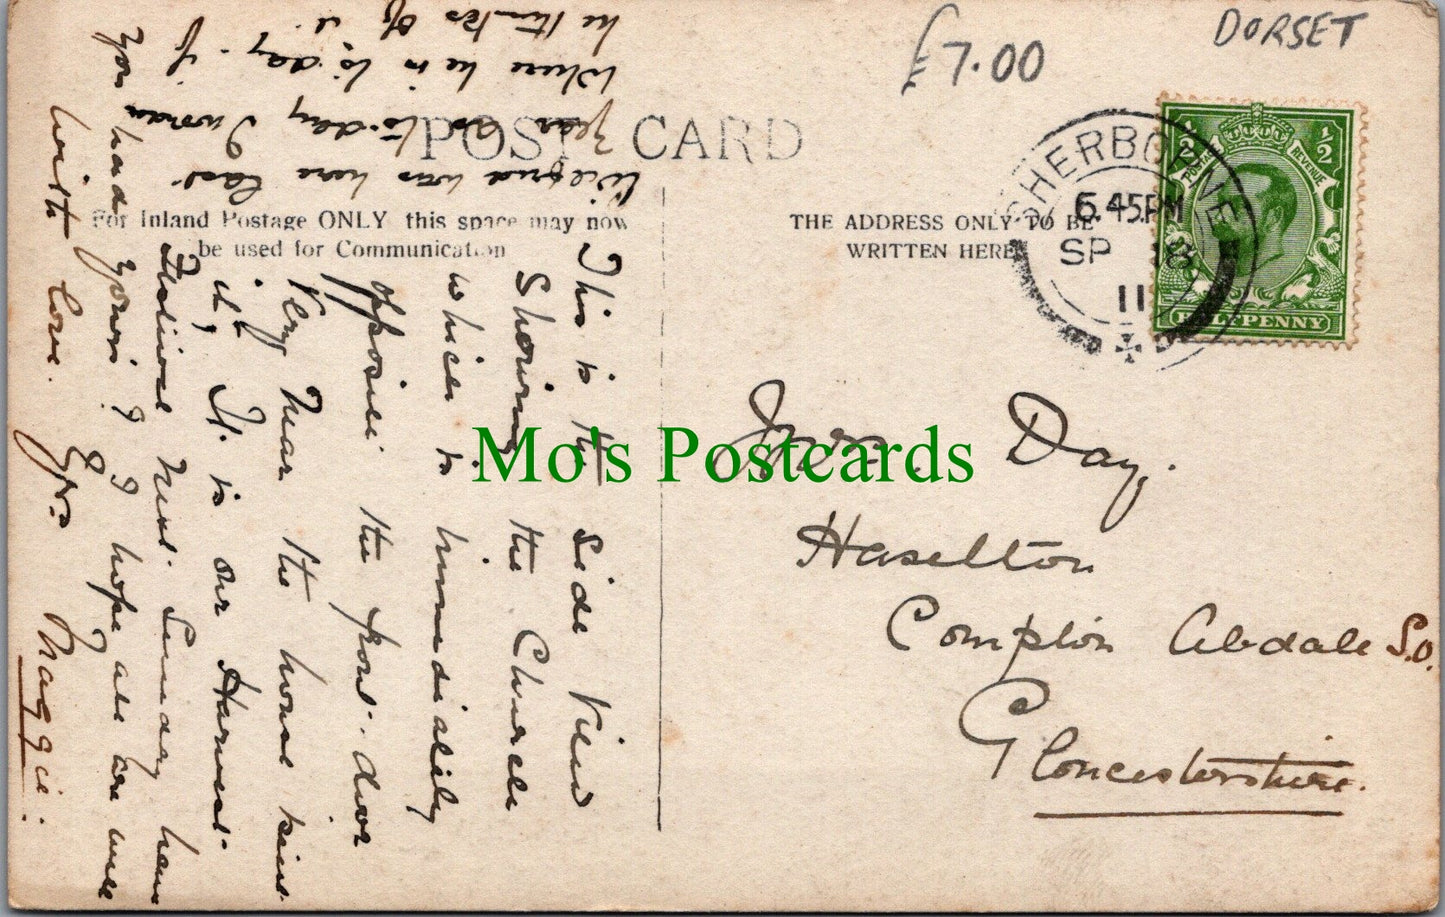 £7.00
DORSET
POST CARD
For Inland Postage ONLY this space may now
be used for Communication
THE ADDRESS ONLY TO BE
WRITTEN HERE
SHERBORNE
6.45PM
SP 18
11
1/2
1/2
POSTAGE
REVENUE
HALFPENNY
Mrs. Day.
Haselton
Compton Abdale S.O.
Gloucestershire.
This is the side View
Showing the Church
which is immediately
opposite the front door
Very near the house isn't
it, It is our Harvest
Festival next Sunday have
you had yours? I hope all are well
with love. Yrs. Maggie:
Wilfrid was here last
year as to-day I wonder
where he is to-day. if
he thinks of it.
Mo's Postcards